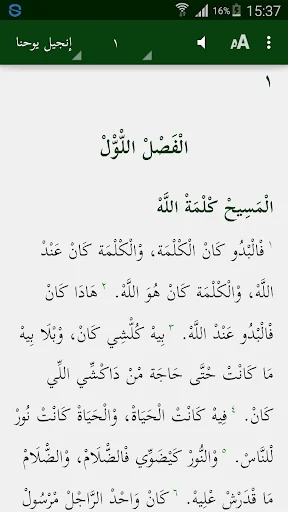 16% 15:37
إنجيل يوحنا ١ AA
١
الْفَصْلْ اللُّوّلْ
الْمَسِيحْ كْلْمَةْ اللَّهْ
١ فْالْبْدُو كَانْ الْكْلْمَة، وْالْكْلْمَة كَانْ عَنْدْ
اللَّه، وْالْكْلْمَة كَانْ هُوَ اللَّهْ. ٢ هَادَا كَانْ
فْالْبْدُو عَنْدْ اللَّهْ. ٣ بِيهْ كُلّْشِي كَانْ، وْبْلَا بِيهْ
مَا كَانْتْ حْتَّى حَاجَة مْنْ دَاكْشِّي اللِّي
كَانْ. ٤ فِيهْ كَانْتْ الْحَيَاةْ، وْالْحَيَاةْ كَانْتْ نُورْ
لْلنَّاسْ. ٥ وْالنُّورْ كَيْضَوِّي فْالضَّلَامْ، وْالضَّلَامْ
مَا قْدَرْشْ عْلِيهْ. ٦ كَانْ وَاحْدْ الرَّاجْلْ مْرْسُولْ